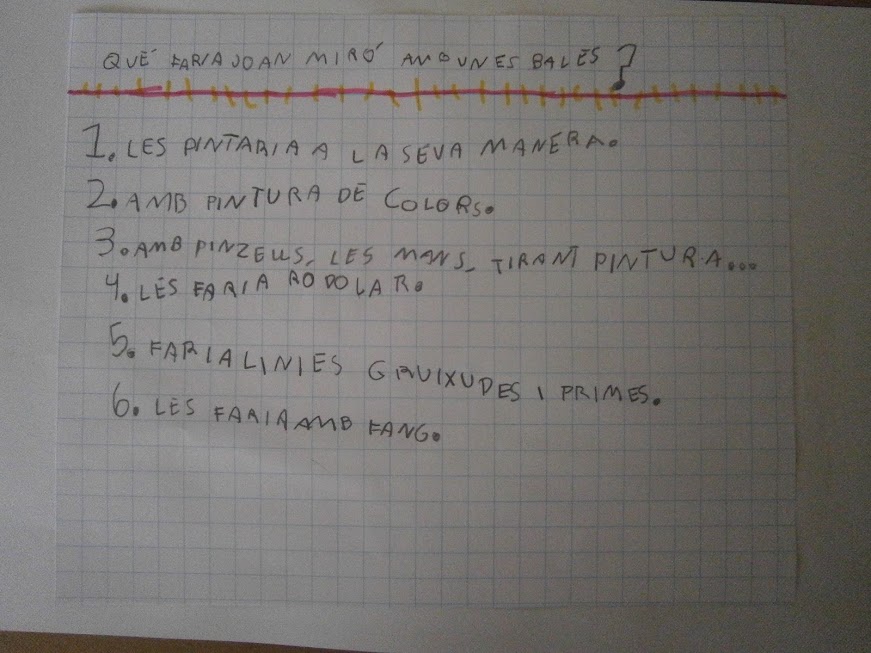 QUÈ FARIA JOAN MIRÓ AMB UNES BALES?
1. LES PINTARIA A LA SEVA MANERA.
2. AMB PINTURA DE COLORS.
3. AMB PINZELLS, LES MANS, TIRANT PINTURA...
4. LES FARIA RODOLAR.
5. FARIA LINIES GRUIXUDES I PRIMES.
6. LES FARIA AMB FANG.